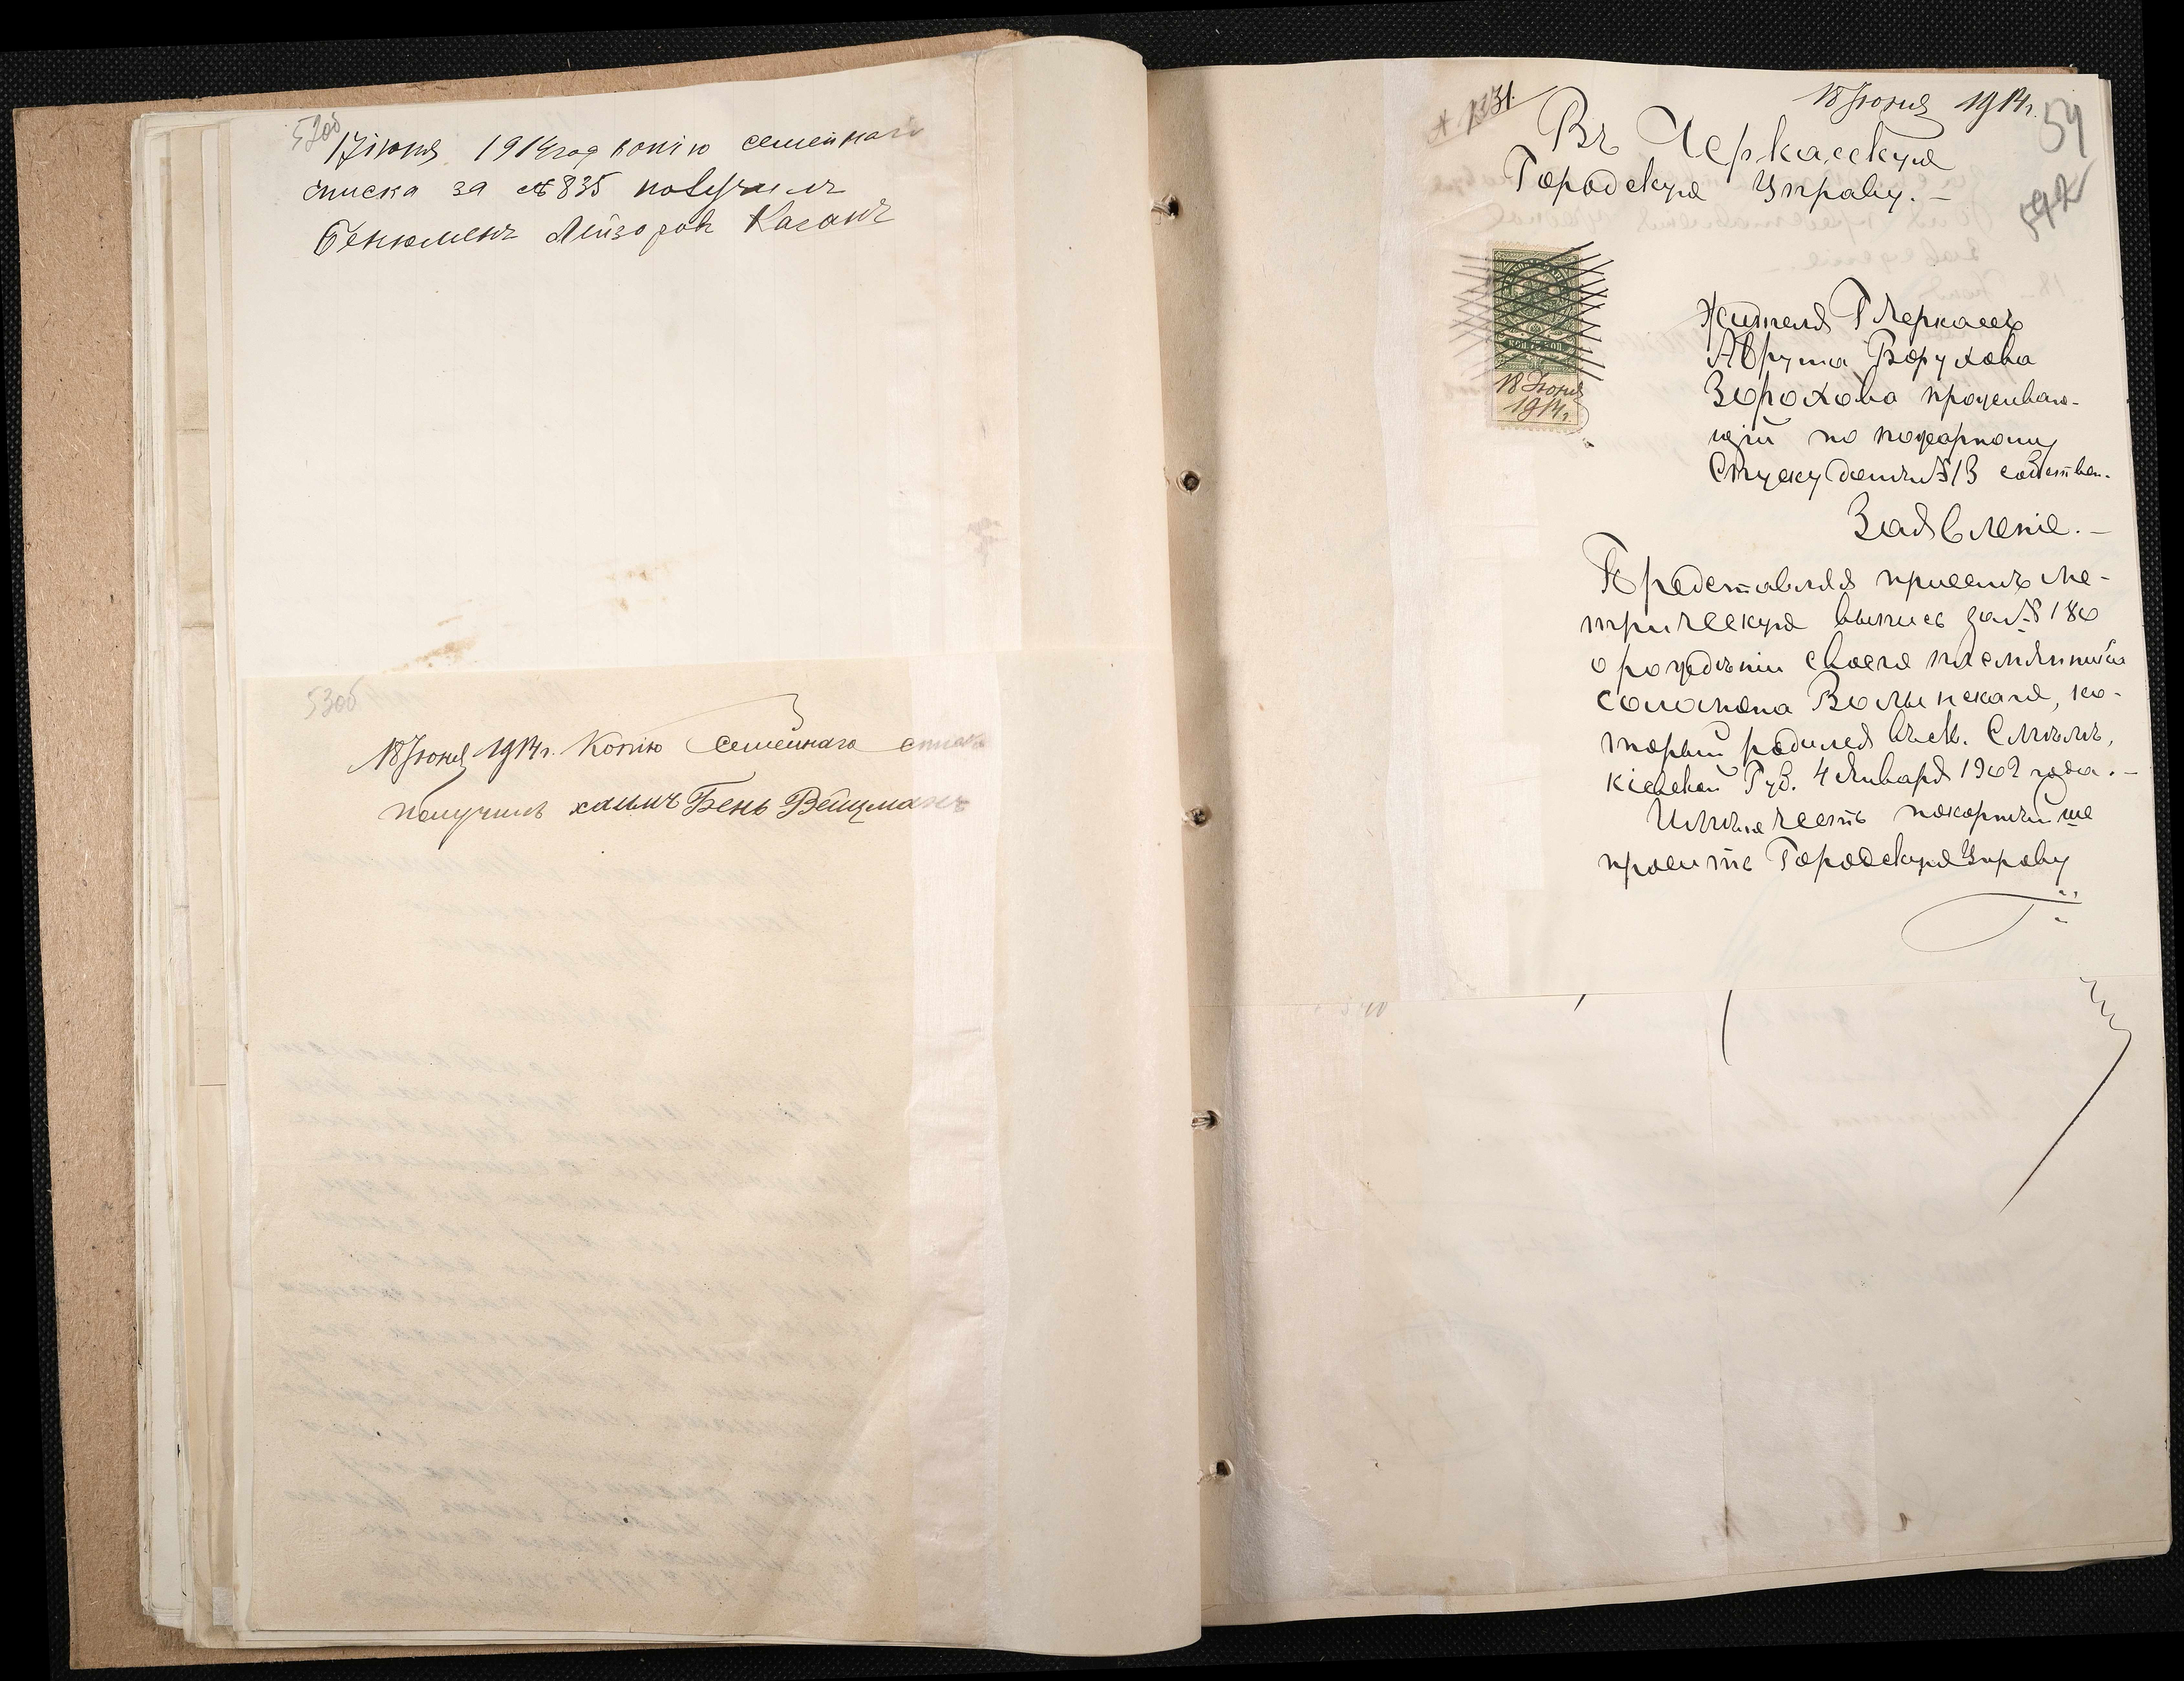 52об
17 іюня 1914 год копію семейнаго
списка за №835 получилъ
Бенюменъ Лейзоровъ Каганъ
53об
18 Іюня 1914г. Копію Семейнаго списка
получилъ хаимъ Бень Вейцманъ
№ 1331.
18 Іюня 1914г.
54
Въ Черкасскую
Городскую Управу. –
КОП. 75 КОП.
18 Іюня
1914г.
Жителя Г Черкассъ
Аврума Борухова
Зорохова проживаю-
щій по пожарному
Спуску домъ №13 собствен.
Заявленіе. –
Представляя присемъ ме-
трическую выпись за №180
о рожденіи своего племянника
Соломона Волынскаго, ко-
торый родился въ м. Смѣлѣ,
Кіевской Губ. 4 Января 1902 года. –
Имѣю честь покорнѣйше
просить Городскую Управу